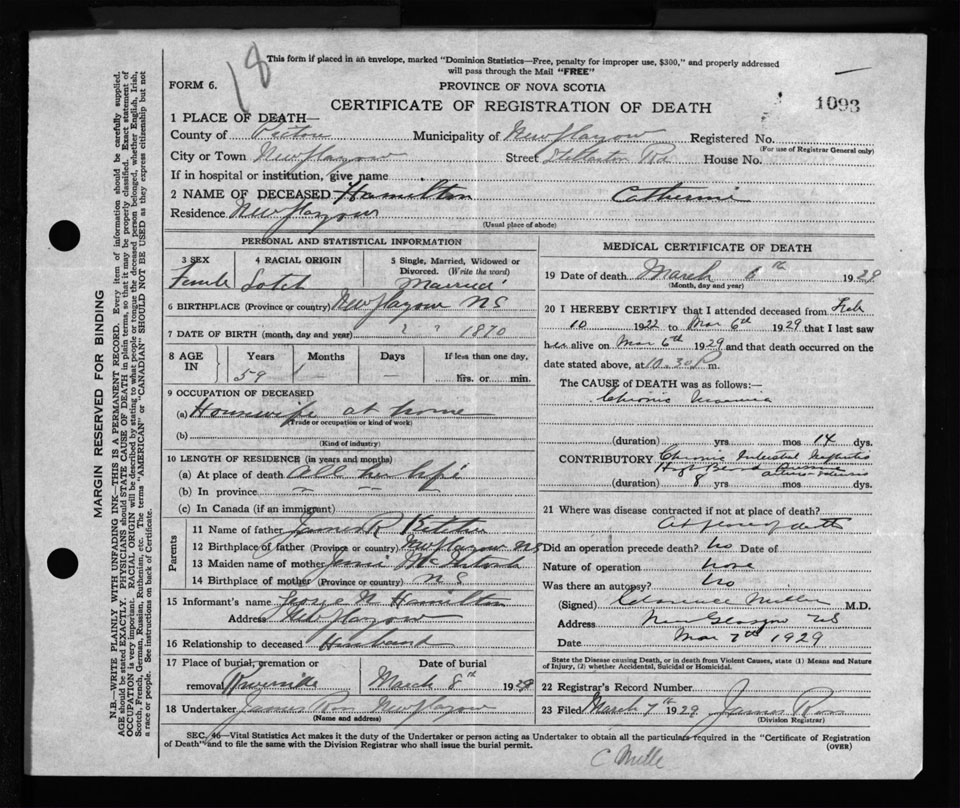 18
This form if placed in an envelope, marked "Dominion Statistics—Free, penalty for improper use, $300," and properly addressed
will pass through the Mail "FREE"
FORM 6.
PROVINCE OF NOVA SCOTIA
CERTIFICATE OF REGISTRATION OF DEATH
1093
1 PLACE OF DEATH—
County of Pictou Municipality of New Glasgow Registered No.
(For use of Registrar General only)
City or Town New Glasgow Street Stellarton Rd House No.
If in hospital or institution, give name
2 NAME OF DECEASED Hamilton Catherine
Residence New Glasgow
(Usual place of abode)
PERSONAL AND STATISTICAL INFORMATION
3 SEX 4 RACIAL ORIGIN 5 Single, Married, Widowed or
Divorced. (Write the word)
Female Scotch Married
6 BIRTHPLACE (Province or country) New Glasgow N S
7 DATE OF BIRTH (month, day and year) " " 1870
8 AGE IN Years Months Days If less than one day.
59 — — hrs. or min.
9 OCCUPATION OF DECEASED
(a) Housewife at home
(Trade or occupation or kind of work)
(b)
(Kind of industry)
10 LENGTH OF RESIDENCE (in years and months)
(a) At place of death All her life
(b) In province
(c) In Canada (if an immigrant)
Parents
11 Name of father James R
12 Birthplace of father (Province or country) New Glasgow NS
13 Maiden name of mother McIntosh
14 Birthplace of mother (Province or country) N S
15 Informant's name George Hamilton
Address New Glasgow
16 Relationship to deceased Husband
17 Place of burial, cremation or Date of burial
removal Riverside March 8th 1929
18 Undertaker James Ross New Glasgow
(Name and address)
MEDICAL CERTIFICATE OF DEATH
19 Date of death March 6th 1929
(Month, day and year)
20 I HEREBY CERTIFY that I attended deceased from Feb
10 1922 to Mar 6th 1929 that I last saw
her alive on Mar 6th 1929 and that death occurred on the
date stated above, at 10.30 P m.
The CAUSE of DEATH was as follows:—
Chronic Uraemia
(duration) yrs mos 14 dys.
CONTRIBUTORY Chronic Interstitial Nephritis
(duration) 8 yrs mos dys.
21 Where was disease contracted if not at place of death?
At place of death
Did an operation precede death? No Date of
Nature of operation none
Was there an autopsy? No
(Signed) Clarence Miller M.D.
Address New Glasgow NS
Date Mar 7th 1929
State the Disease causing Death, or in death from Violent Causes, state (1) Means and Nature
of Injury, (2) whether Accidental, Suicidal or Homicidal.
22 Registrar's Record Number
23 Filed March 7th 1929 James Ross
(Division Registrar)
SEC. 46—Vital Statistics Act makes it the duty of the Undertaker or person acting as Undertaker to obtain all the particulars required in the "Certificate of Registration
of Death" and to file the same with the Division Registrar who shall issue the burial permit.
(OVER)
C Mille
MARGIN RESERVED FOR BINDING
N.B.—WRITE PLAINLY WITH UNFADING INK—THIS IS A PERMANENT RECORD. Every item of information should be carefully supplied.
AGE should be stated EXACTLY. PHYSICIANS should STATE CAUSE OF DEATH in plain terms, so that it may be properly classified. Exact statement of
OCCUPATION is very important. RACIAL ORIGIN will be described by stating to what people or tongue the deceased person belonged, whether English, Irish,
Scotch, French, German, Russian, Ruthenian, etc. The terms "AMERICAN" or "CANADIAN" SHOULD NOT BE USED as they express citizenship but not
a race or people. See instructions on back of Certificate.